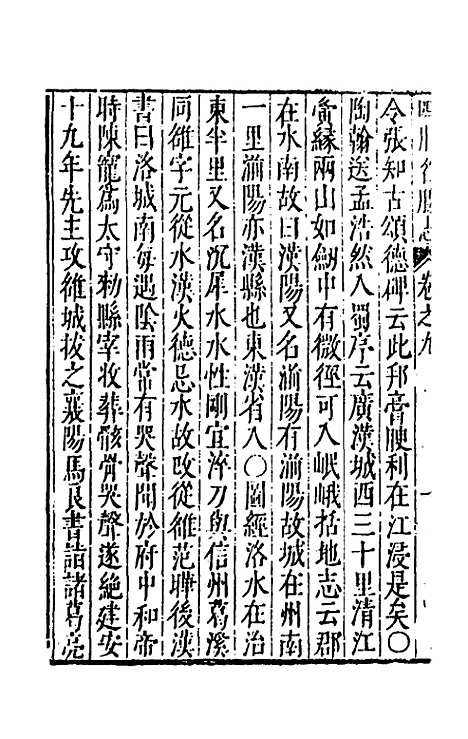 四川名勝志 卷之九
令張知古頌德碑云此邦膏腴利在江浸是矣〇
陶翰送孟浩然入蜀序云廣漢城西三十里清江
夤緣兩山如劒中有微徑可入岷峨括地志云郡
在水南故曰漢陽又名湔陽有湔陽故城在州南
一里湔陽亦漢縣也東漢省入〇圖經洛水在治
東半里又名沉犀水水性剛宜淬刀與信州葛溪
同雒字元從水漢火德忌水故改從雒范曄後漢
書曰洛城南每遇陰雨常有哭聲聞於府中和帝
時陳寵爲太守勑縣宰收葬骸骨哭聲遂絶建安
十九年先主攻雒城拔之襄陽馬良書詰諸葛亮